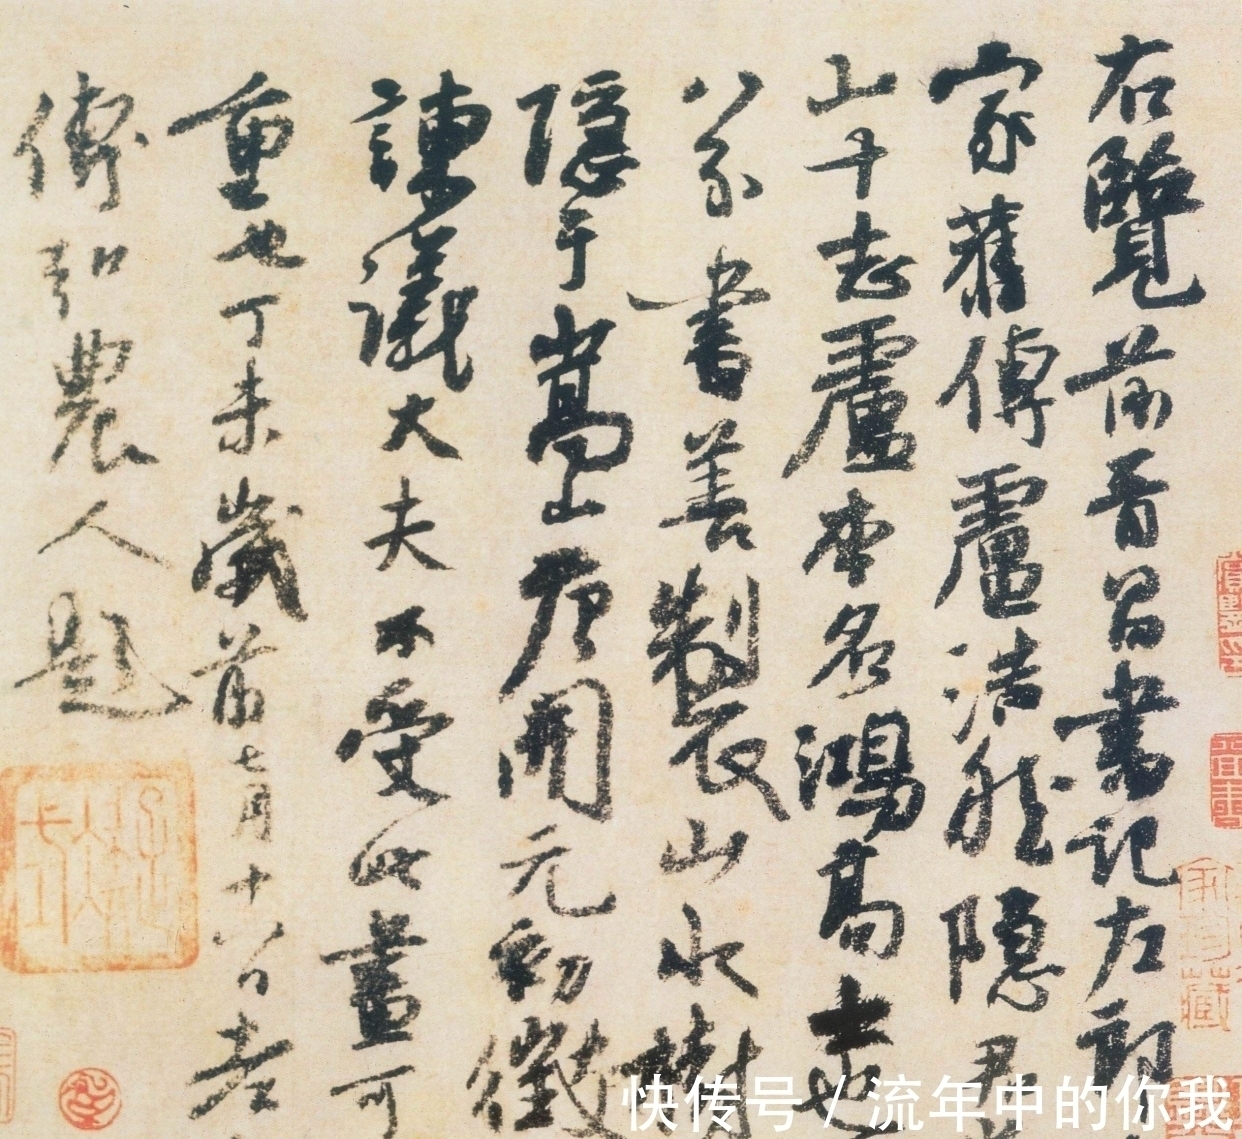 右覽前晉昌書記左郎
家舊傳盧浩然隱君
山十志盧本名鴻高士也
八分書善製山水樹
隱于嵩山唐開元初徵
諫議大夫不受此畫可
重也丁未歲前七月十八日老
傅弘農人題
快传号 / 流年中的你我